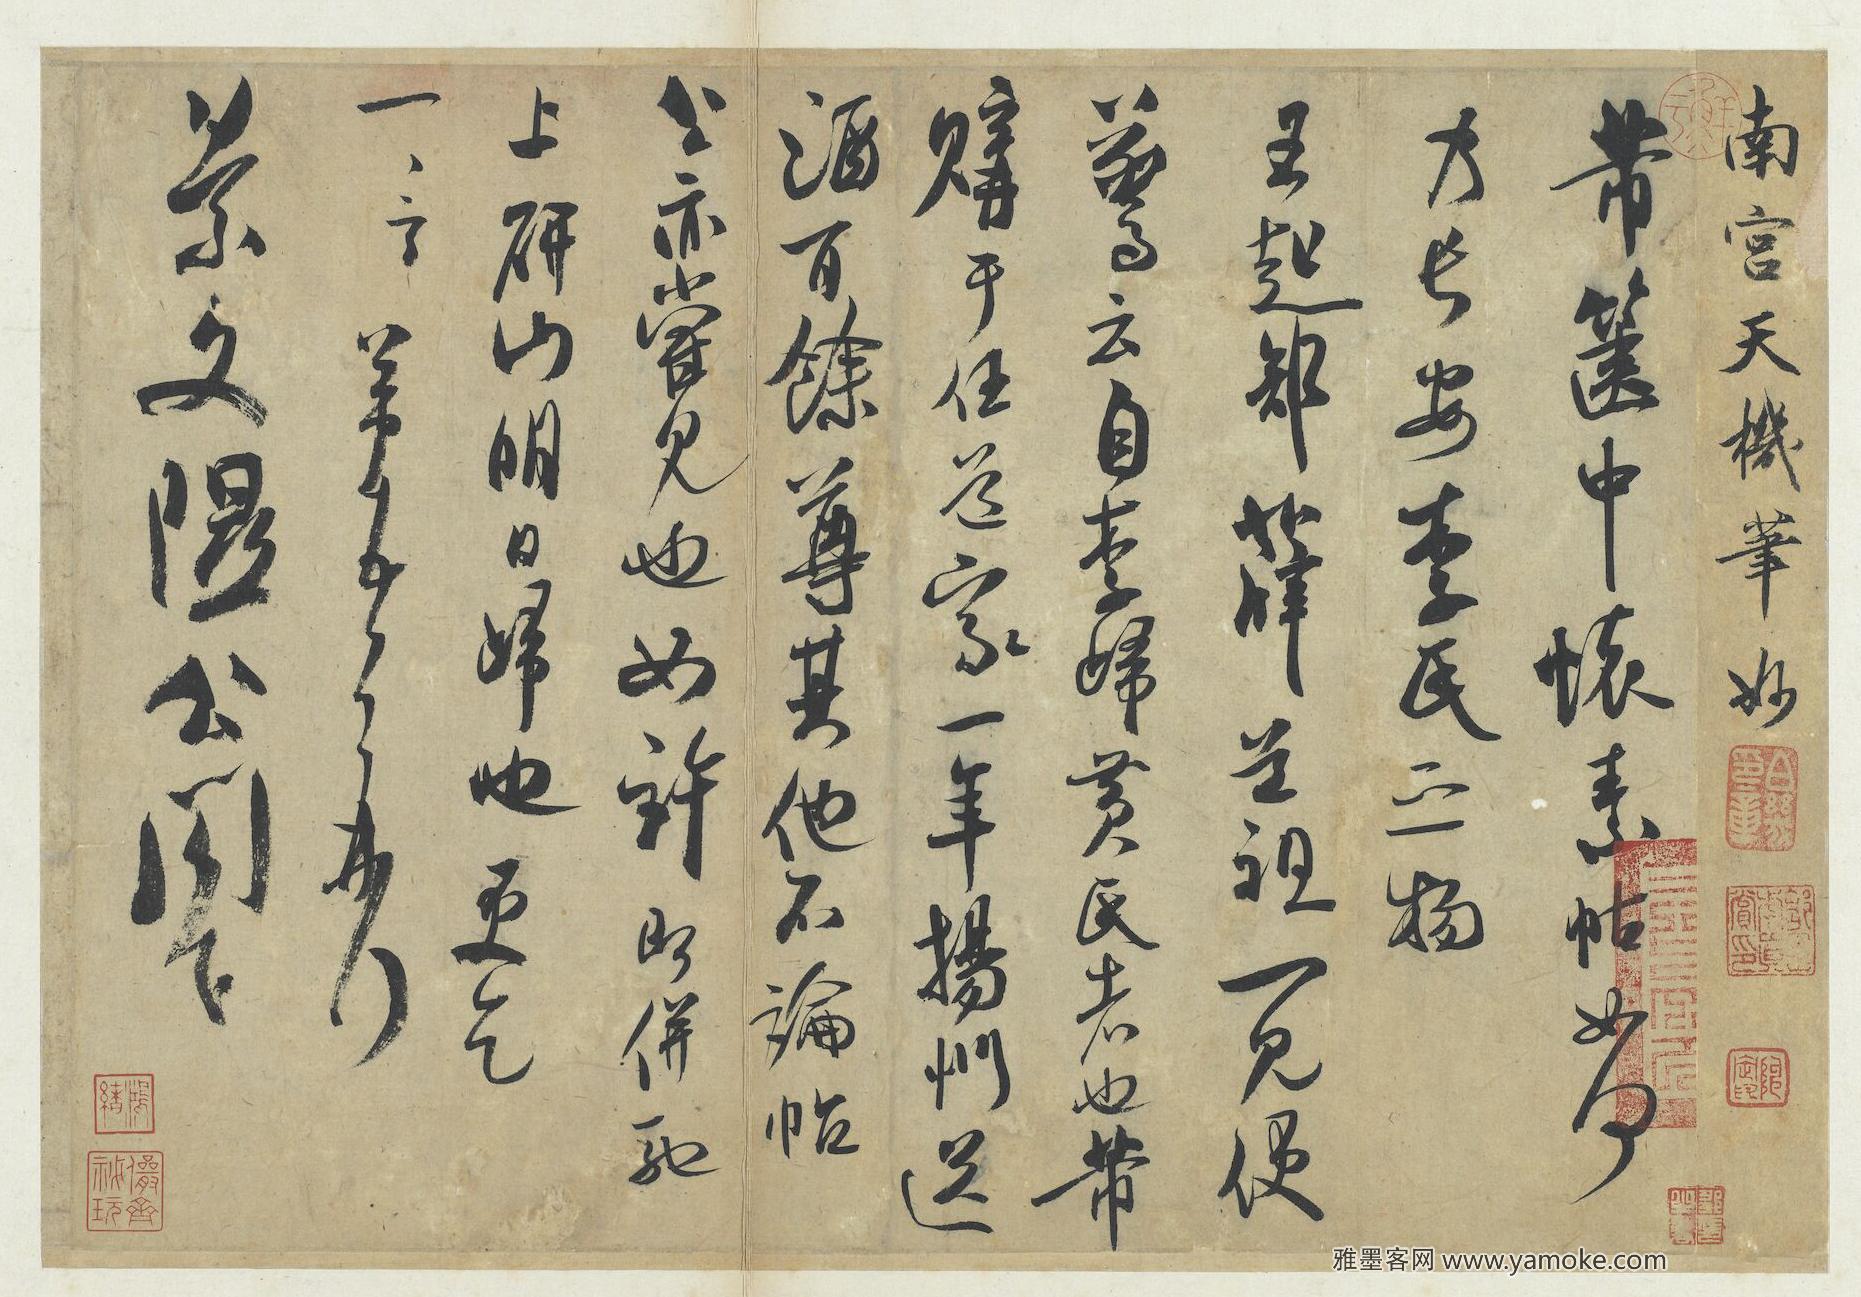 南宮天機筆妙
芾篋中懷素帖如何
乃長安李氏之物
王起部薛道祖一見便
驚云自李歸黃氏者也芾
購于任道家一年揚州送
酒百餘尊其他不論帖
公亦嘗見也如許即併馳
上研山明日歸也更乞
一言芾頓首再拜
景文隰公閣下
鴻緒
儼齋祕玩
雅墨客网 www.yamoke.com